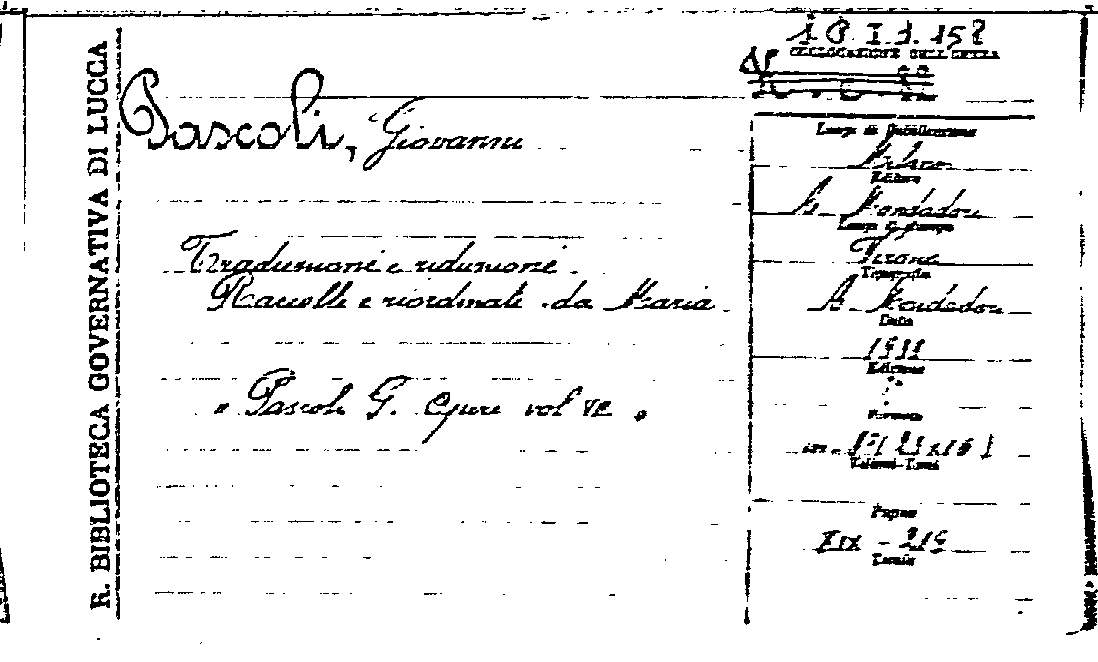 R. BIBLIOTECA GOVERNATIVA DI LUCCA
COLLOCAZIONE DELL'OPERA
Pascoli, Giovanni
Traduzioni e riduzioni
Raccolte e riordinate da Maria
" Pascoli G. Opere vol "
Luogo di Pubblicazione
Milano
Editore
A. Mondadori
Luogo di stampa
Verona
Tipografia
A. Mondadori
Data
Edizione
Formato
Volumi-Tomi
Pagine
XIX - 219
Tavole